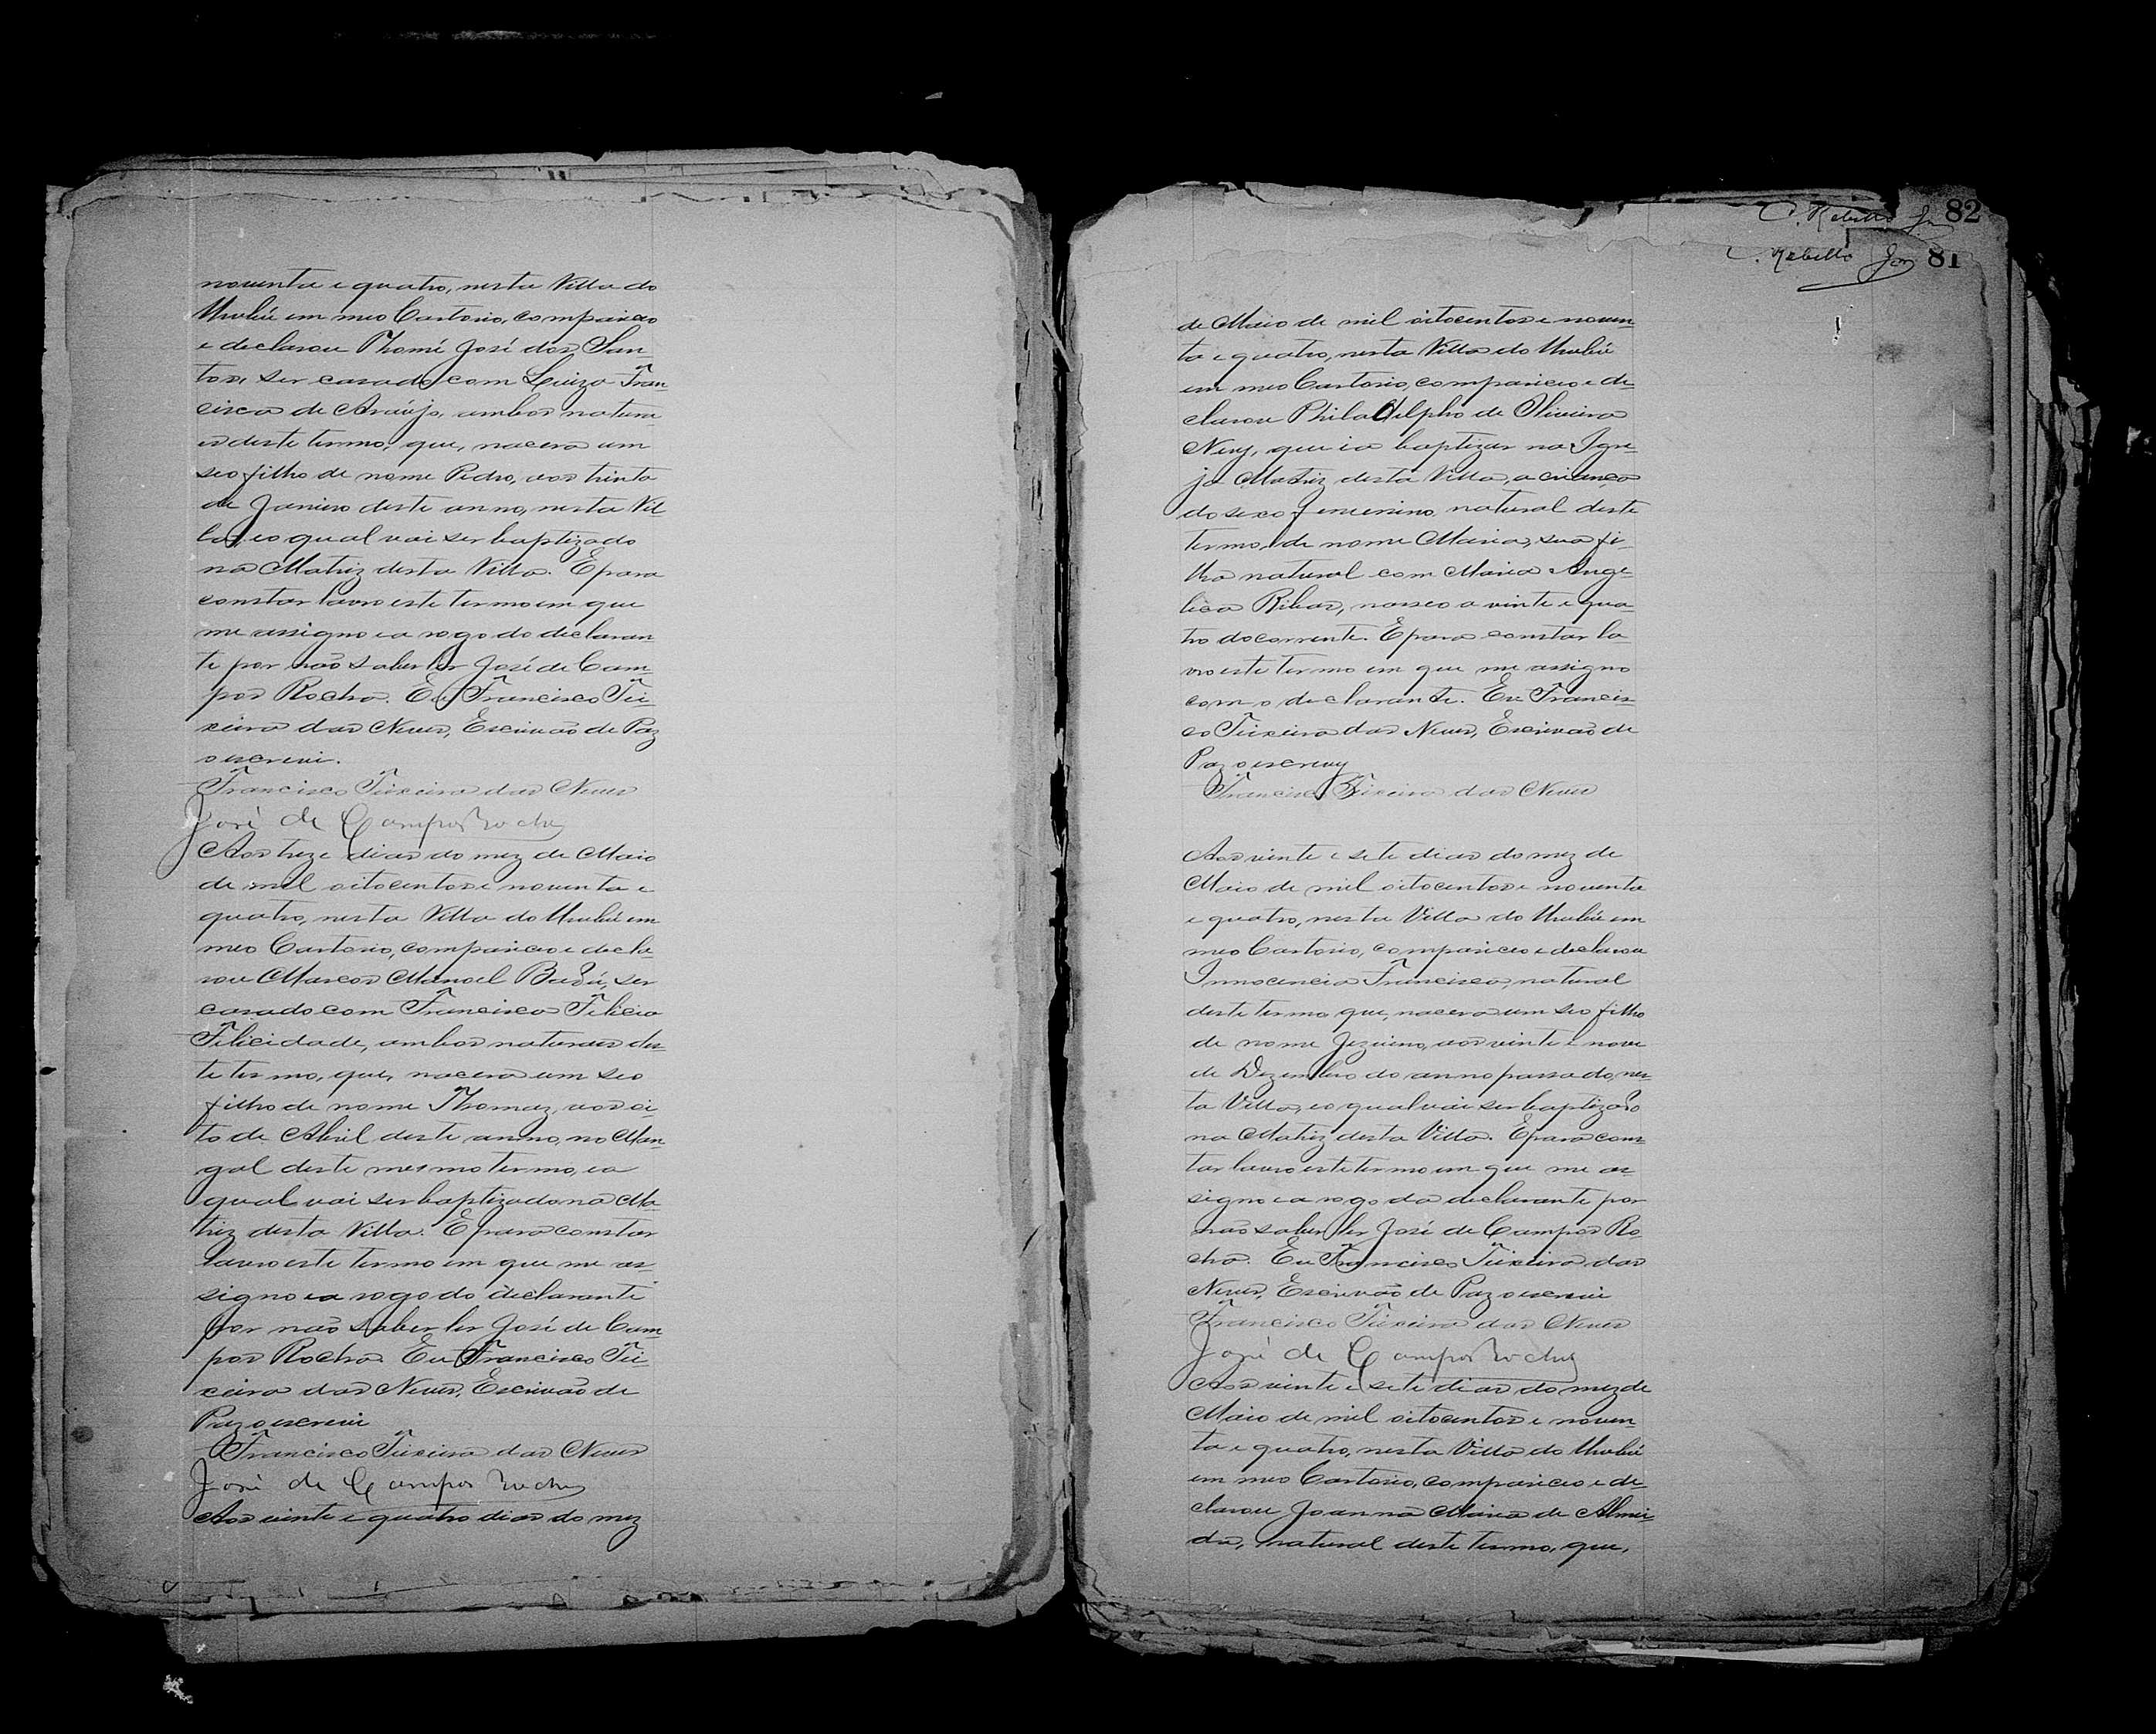 noventa e quatro, nesta Villa do
Urubú em meo Cartorio, compareceo
e declarou Thomé José dos San-
tos, ser casado com Luiza Fran-
cisca de Araújo, ambos naturа
es deste termo, que, nacera um
seo filho de nome Pedro, aos trinta
de Janeiro deste anno, nesta Vil-
la, e o qual vai ser baptizado
na Matriz desta Villa. E para
constar lavro este termo em que
me assigno e a rogo do declaran
te por não saber ler José de Cam-
pos Rocha. Eu Francisco Tei-
xeira das Neves, Escrivão de Paz
o escrevi.
Francisco Teixeira das Neves
José de Campos Rocha
Aos treze dias do mez de Maio
de mil oitocentos e noventa e
quatro, nesta Villa do Urubú em
meo Cartorio, compareceo e decla-
rou Marcos Manoel Badú, ser
casado com Francisca Felicia
Felicidade, ambos naturaes des-
te termo, que, nacera um seo
filho de nome Thomaz, aos oi
to de Abril deste anno, no Man-
gal deste mesmo termo, e o
qual vai ser baptizado na Ma-
triz desta Villa. E para constar
lavro este termo em que me as-
signo e a rogo do declarante
por não saber ler José de Cam-
pos Rocha. Eu Francisco Tei-
xeira das Neves, Escrivão de
Paz o escrevi
Francisco Teixeira das Neves
José de Campos Rocha
Aos vinte e quatro dias do mez
C. Rebello Jor 82
C. Rebello Jor 81
de Maio de mil oitocentos e noven-
ta e quatro, nesta Villa do Urubú
em meo Cartorio, compareceo e de-
clarou Philadelpho de Oliveira
Nery, que ia baptizar na Igre-
ja Matriz desta Villa, a criança
do sexo femenino, natural deste
termo, de nome Maria, sua fi-
lha natural com Maria Ange-
lica Ribas, nasceo a vinte e qua-
tro do corrente. E para constar la
vro este termo em que me assigno
com o declarante. Eu Francis-
co Teixeira das Neves, Escrivão de
Paz o escrevy
Francisco Teixeira das Neves
Aos vinte e sete dias do mez de
Maio de mil oitocentos e noventa
e quatro, nesta Villa do Urubú em
meo Cartorio, compareceo e declarou
Innocencia Francisca, natural
deste termo, que, nacera um seo filho
de nome Jezuino, aos vinte e nove
de Dezembro do anno passado, nes-
ta Villa, e o qual vai ser baptizado
na Matriz desta Villa. E para cons-
tar lavro este termo em que me as-
signo e a rogo da declarante por
não saber ler José de Campos Ro-
cha. Eu Francisco Teixeira das
Neves, Escrivão de Paz o escrevi
Francisco Teixeira das Neves
José de Campos Rocha
Aos vinte e sete dias do mez de
Maio de mil oitocentos e noven-
ta e quatro, nesta Villa do Urubú
em meo Cartorio, compareceo e de-
clarou Joanna Maria de Almei-
da, natural deste termo, que,